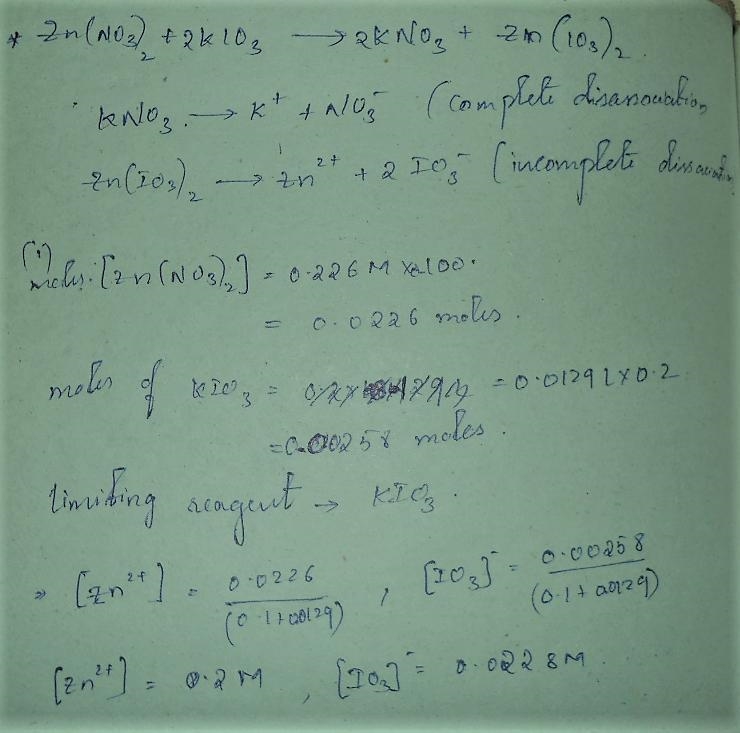 * Zn(NO3)2 + 2KIO3 → 2KNO3 + Zn(IO3)2
KNO3 → K+ + NO3- (complete
Zn(IO3)2 → Zn2+ + 2 IO3- (incomplete
(1)
moles. [Zn(NO3)2] = 0.226 M × 100.
= 0.0226 moles.
moles of KIO3 = = 0.01291 × 0.2
= 0.00258 moles.
limiting reagent → KIO3.
⇒ [Zn2+] = 0.0226 / (0.1 + 0.0129) , [IO3]- = 0.00258 / (0.1 + 0.0129)
[Zn2+] = 0.2 M , [IO3]- = 0.0228 M